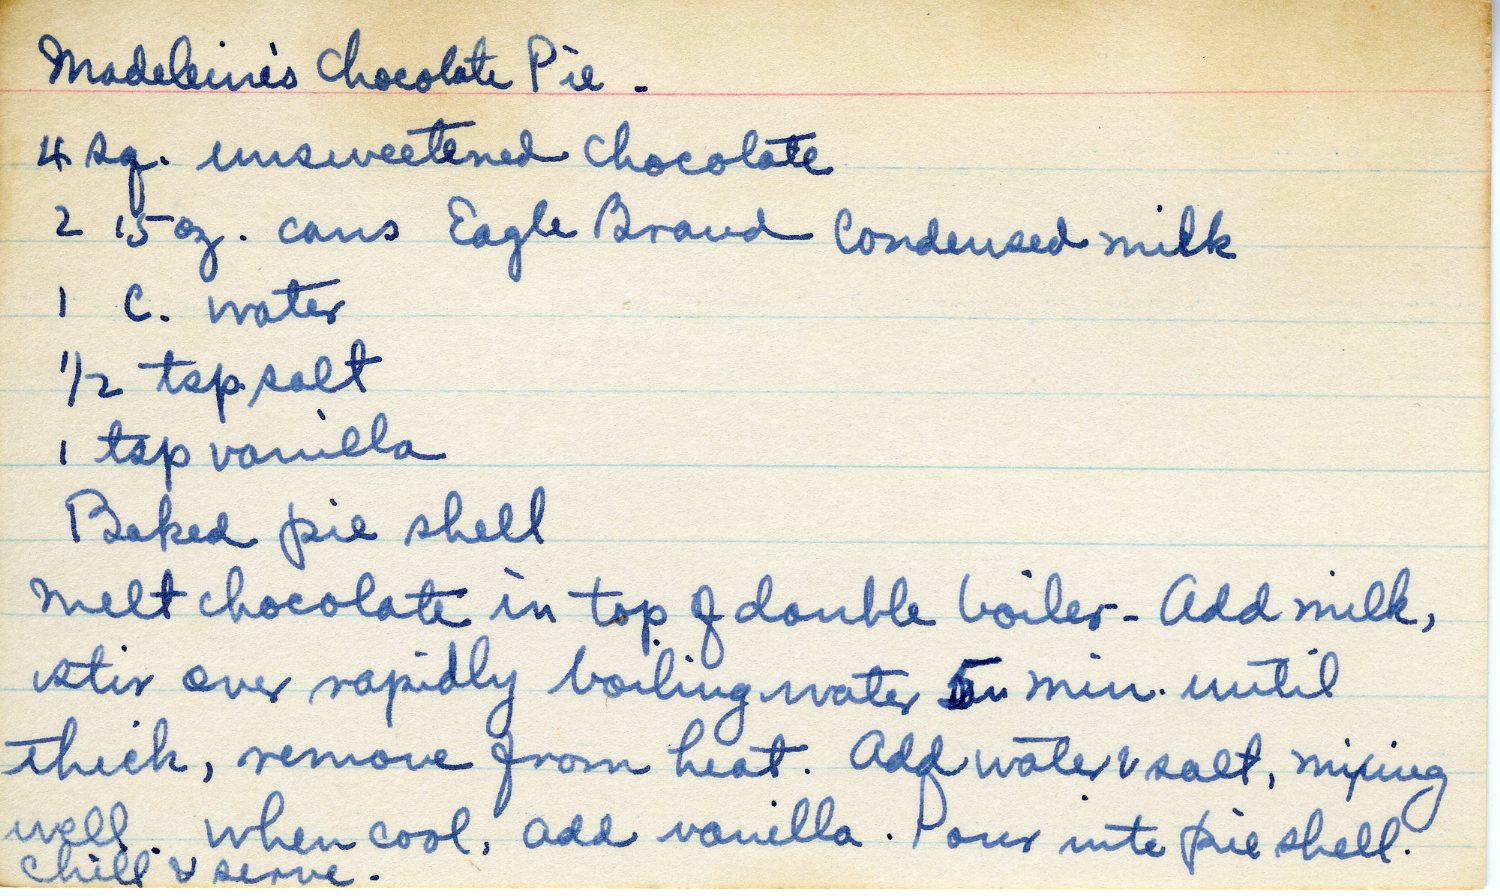 Madeleine's Chocolate Pie -
4 sq. unsweetened chocolate
2 15 oz. cans Eagle Brand Condensed milk
1 C. water
1/2 tsp. salt
1 tsp vanilla
Baked pie shell
Melt chocolate in top of double boiler - Add milk,
stir over rapidly boiling water 5 min. until
thick, remove from heat. Add water & salt, mixing
well. When cool, add vanilla. Pour into pie shell.
Chill & serve.